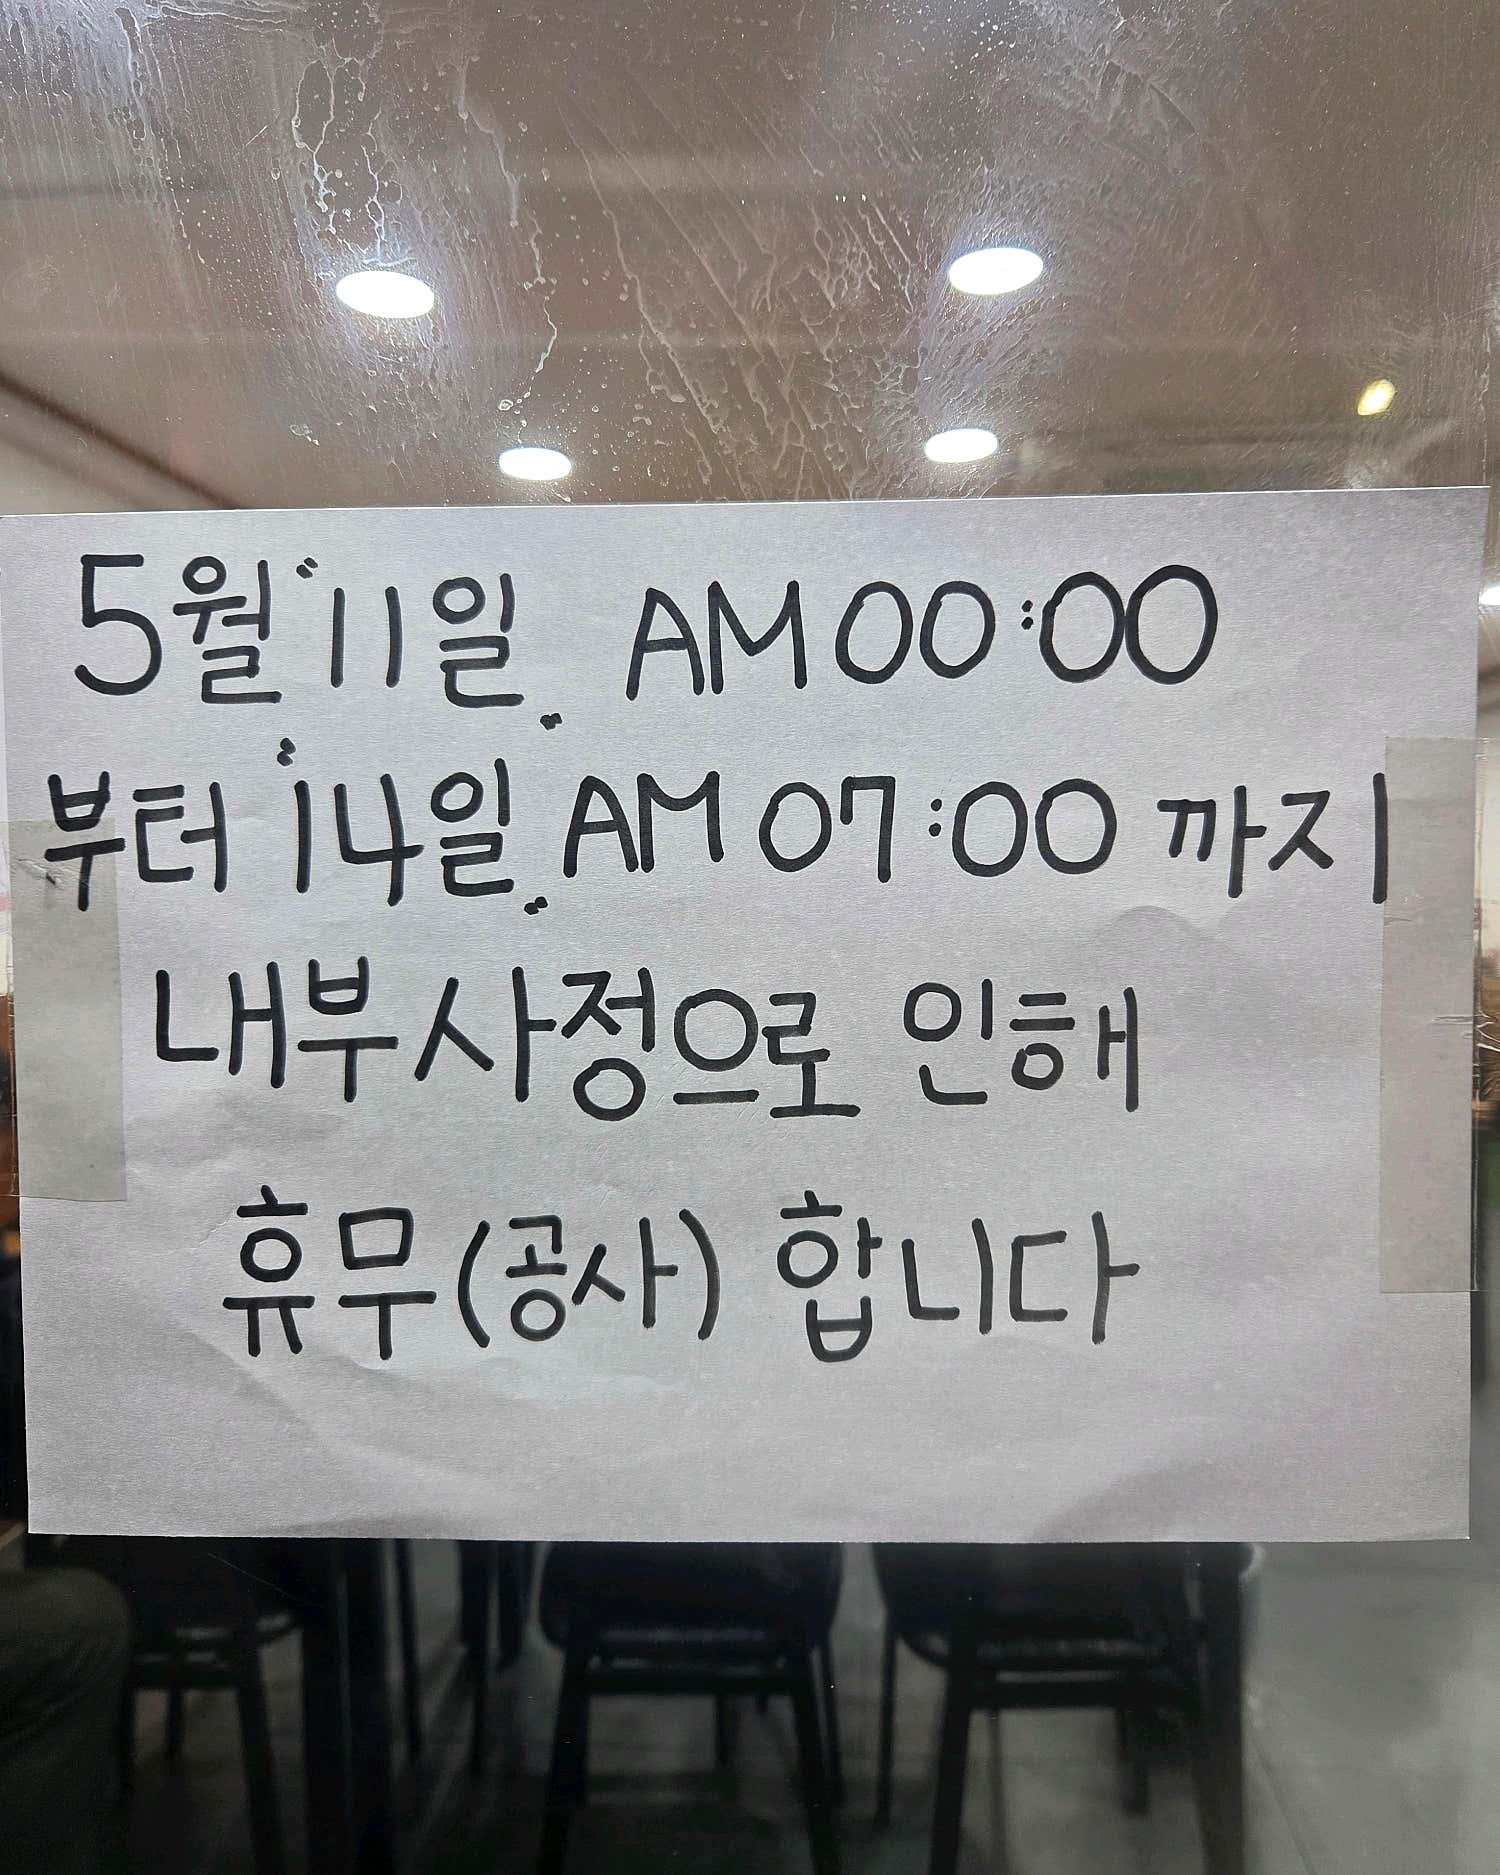 5월 "11일„ AM 00:00
부터 "14일„ AM 07:00 까지
내부사정으로 인해
휴무(공사) 합니다